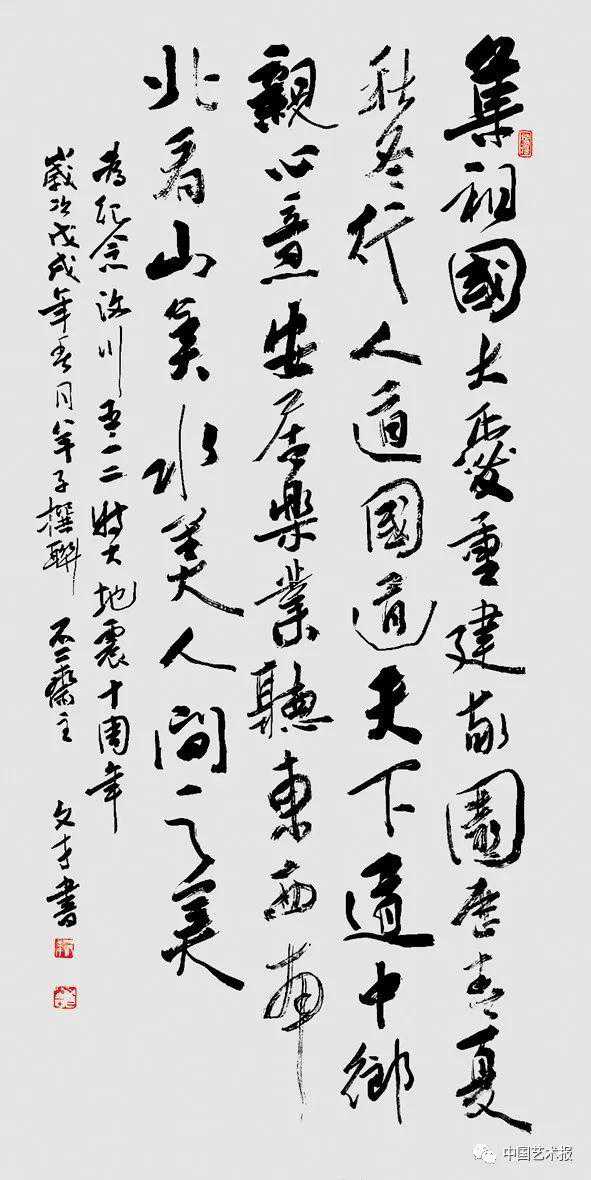 集祖國大愛重建家園歷春夏
秋冬行人道國道天下道中鄉
親心意安居樂業聽東西南
北看山美水美人間之美
為紀念汶川五一二特大地震十周年
歲次戊戌年春月羊子撰聯 不二齋主 文才書
中国艺术报